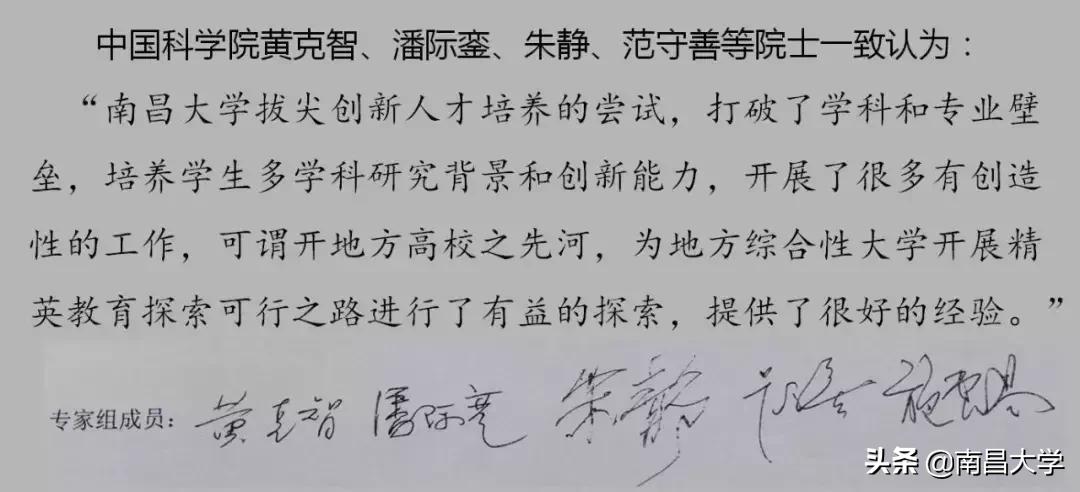 中国科学院黄克智、潘际銮、朱静、范守善等院士一致认为：
“南昌大学拔尖创新人才培养的尝试，打破了学科和专业壁
垒，培养学生多学科研究背景和创新能力，开展了很多有创造
性的工作，可谓开地方高校之先河，为地方综合性大学开展精
英教育探索可行之路进行了有益的探索，提供了很好的经验。”
专家组成员： 黄克智 潘际銮 朱静
头条 @南昌大学